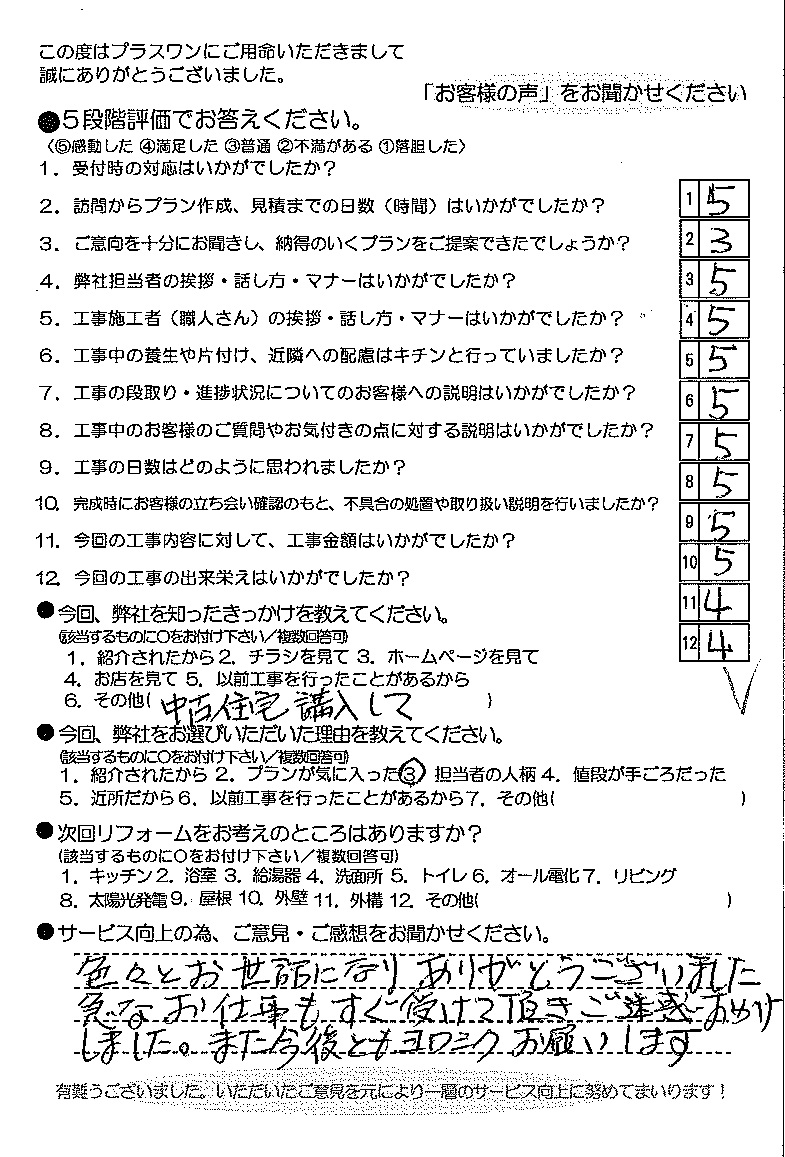 この度はプラスワンにご用命いただきまして
誠にありがとうございました。
「お客様の声」をお聞かせください
●5段階評価でお答えください。
〈⑤感動した ④満足した ③普通 ②不満がある ①落胆した〉
1．受付時の対応はいかがでしたか？
2．訪問からプラン作成、見積までの日数（時間）はいかがでしたか？
3．ご意向を十分にお聞きし、納得のいくプランをご提案できたでしょうか？
4．弊社担当者の挨拶・話し方・マナーはいかがでしたか？
5．工事施工者（職人さん）の挨拶・話し方・マナーはいかがでしたか？
6．工事中の養生や片付け、近隣への配慮はキチンと行っていましたか？
7．工事の段取り・進捗状況についてのお客様への説明はいかがでしたか？
8．工事中のお客様のご質問やお気付きの点に対する説明はいかがでしたか？
9．工事の日数はどのように思われましたか？
10．完成時にお客様の立ち会い確認のもと、不具合の処置や取り扱い説明を行いましたか？
11．今回の工事内容に対して、工事金額はいかがでしたか？
12．今回の工事の出来栄えはいかがでしたか？
1 5
2 3
3 5
4 5
5 5
6 5
7 5
8 5
9 5
10 5
11 4
12 4
●今回、弊社を知ったきっかけを教えてください。
(該当するものに○をお付け下さい／複数回答可)
1．紹介されたから 2．チラシを見て 3．ホームページを見て
4．お店を見て 5．以前工事を行ったことがあるから
6．その他( 中古住宅購入して )
●今回、弊社をお選びいただいた理由を教えてください。
(該当するものに○をお付け下さい／複数回答可)
1．紹介されたから 2．プランが気に入った ③ 担当者の人柄 4．値段が手ごろだった
5．近所だから 6．以前工事を行ったことがあるから 7．その他( )
●次回リフォームをお考えのところはありますか？
(該当するものに○をお付け下さい／複数回答可)
1．キッチン 2．浴室 3．給湯器 4．洗面所 5．トイレ 6．オール電化 7．リビング
8．太陽光発電 9．屋根 10．外壁 11．外構 12．その他( )
●サービス向上の為、ご意見・ご感想をお聞かせください。
色々とお世話になりありがとうございました
急なお仕事もすぐ受けて頂きご迷惑おかけ
しました。また今後ともヨロシクお願いします
有難うございました。いただいたご意見を元により一層のサービス向上に努めてまいります！